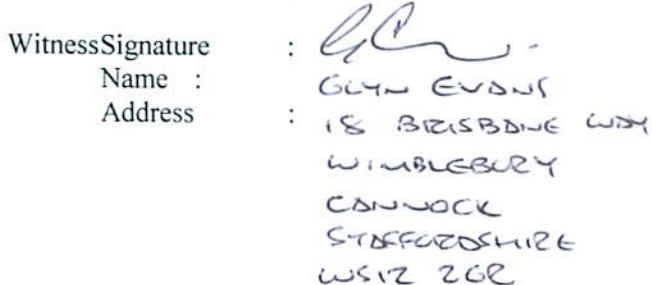 WitnessSignature :
Name : GLYN EVANS
Address : 18 BRISBANE WAY
WIMBLEBURY
CANNOCK
STAFFORDSHIRE
WS12 2GR